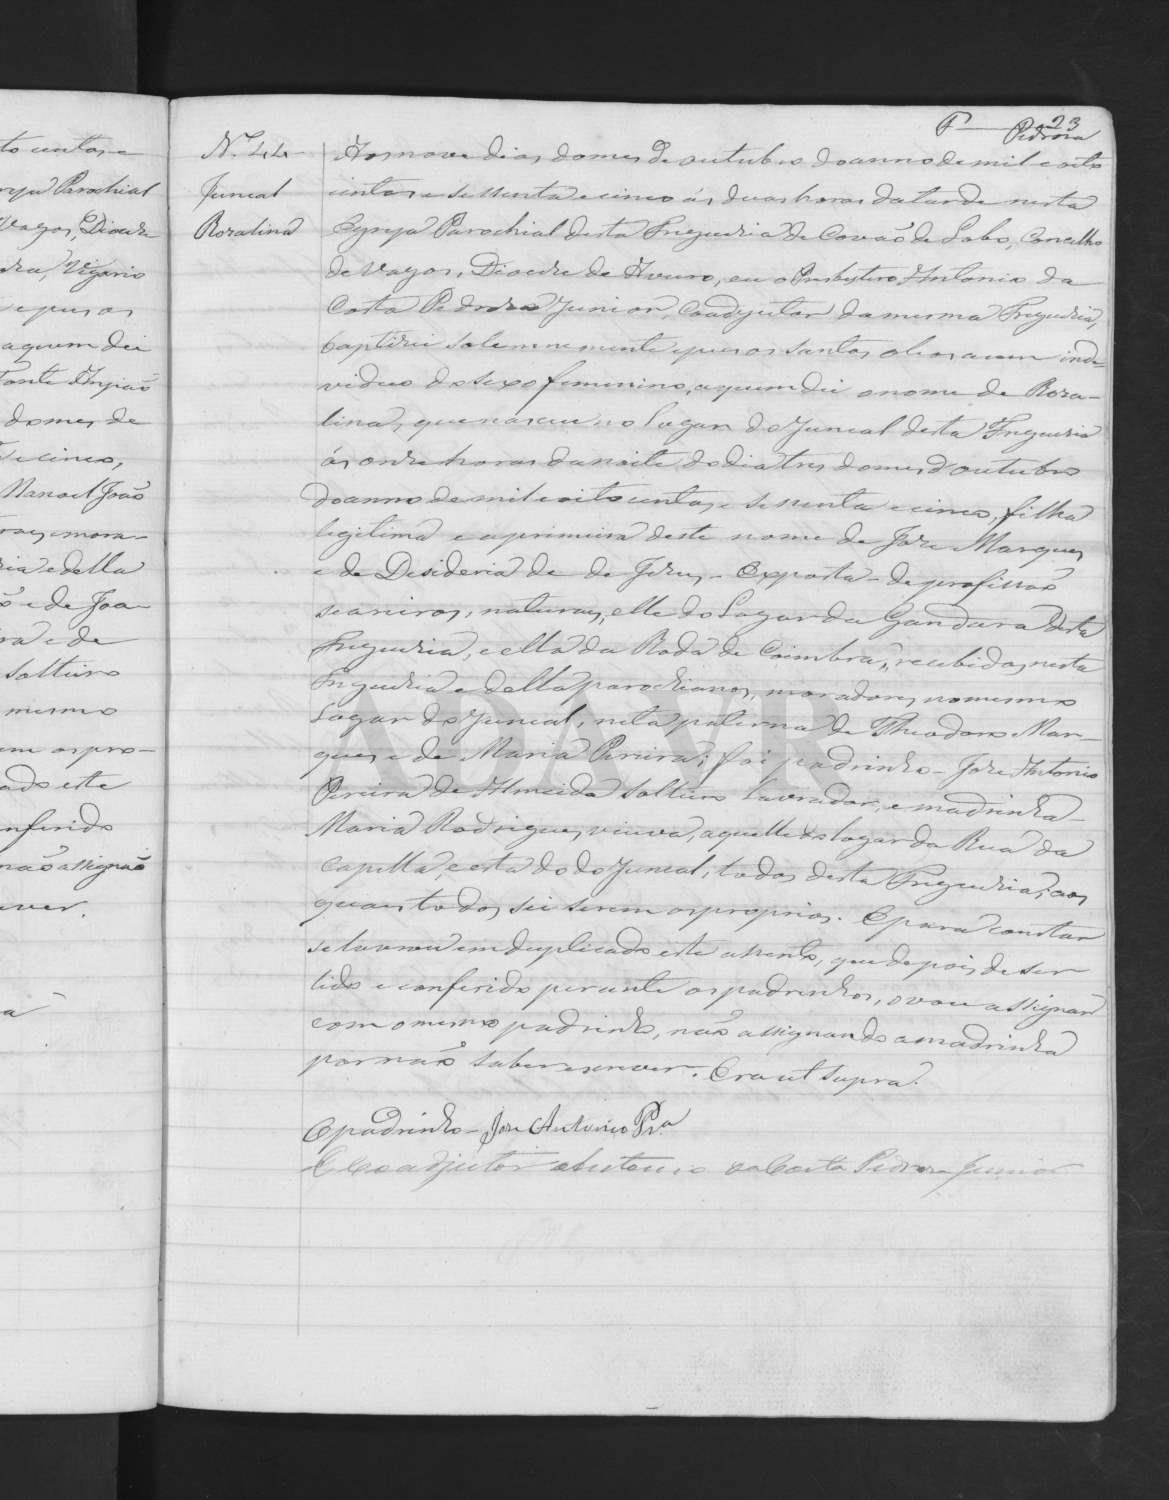 F 23
Pedroza
to centos e
N.º 44 Aos nove dias do mes de outubro do anno de mil e oito
reja Parochial
Juncal centos e sessenta e cinco ás duas horas da tarde nesta
Vagos, Dioceze
Rozalina Egreja Parochial desta Freguezia de Covão de Lobo, Concelho
Vigario
de Vagos, Dioceze de Aveiro, eu o Presbytero Antonio da
e puz os
Costa Pedroza Junior, Coadjutor da mesma Freguezia,
a quem dei
baptizei solemnemente e puz os santos oleos a um indi-
viduo do sexo femenino, a quem dei o nome de Roza-
do mes de
lina, que nasceu no Lugar do Juncal desta Freguezia
e cinco,
ás onze horas da noite do dia tres do mes d'outubro
Manoel João
do anno de mil e oito centos e sessenta e cinco, filha
mora-
legitima e a primeira deste nome de Joze Marques
ria e della
e de Desideria de de Jezus - Exposta - de profissão
e de Joa-
seareiros, naturaes, elle do Lugar da Gandara desta
ra e de
Freguezia, e ella da Roda de Coimbra, recebidos nesta
solteiro
Freguezia e della parochianos, moradores no mesmo
mesmo
Lugar do Juncal, neta paterna de Theodoro Mar-
em os pro-
ques e de Maria Pereira; foi padrinho - Joze Antonio
ado este
Pereira de Almeida solteiro Lavrador, e madrinha
nferido
Maria Rodrigues, viuva, aquelle do lugar da Rua da
não assignão
Capella, e esta do do Juncal, todos desta Freguezia; aos
ever.
quaes todos sei serem os proprios. E para constar
se lavrou em duplicado este assento, que depois de ser
lido e conferido perante os padrinhos, o vou assignar
a
com o mesmo padrinho, não assignando a madrinha
por não saber escrever. Era ut supra.
O padrinho - Joze Antonio Pr.ª
O Coadjutor Antonio da Costa Pedroza Junior
ADAVR